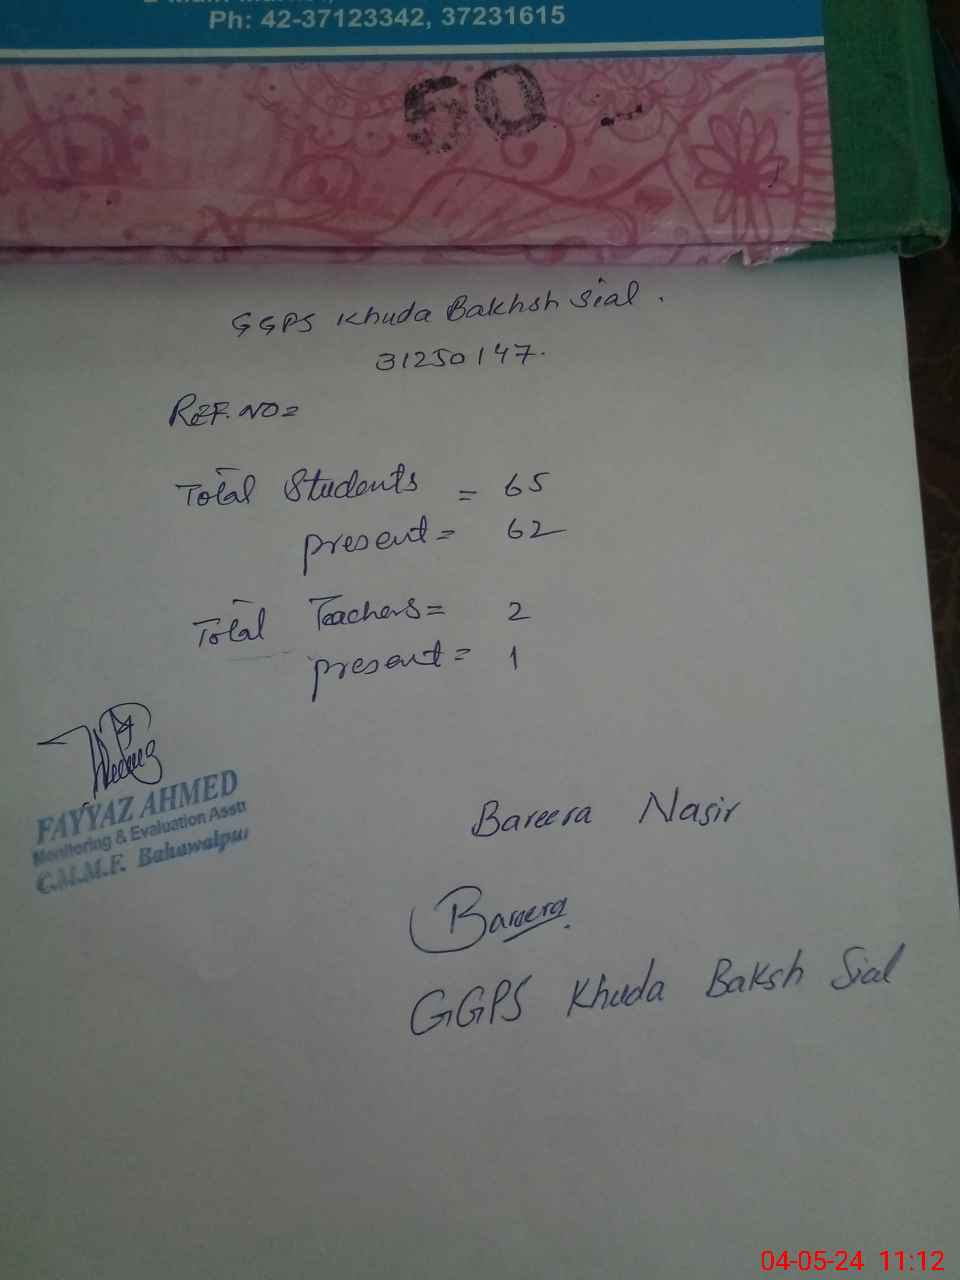 Ph: 42-37123342, 37231615
50
GGPS Khuda Bakhsh Sial.
31250147.
REF. NO=
Total Students = 65
present = 62
Total Teachers = 2
present = 1
FAYYAZ AHMED
Monitoring & Evaluation Asstt
C.M.M.F. Bahawalpur
Bareera Nasir
Bareera.
GGPS Khuda Baksh Sial
04-05-24 11:12